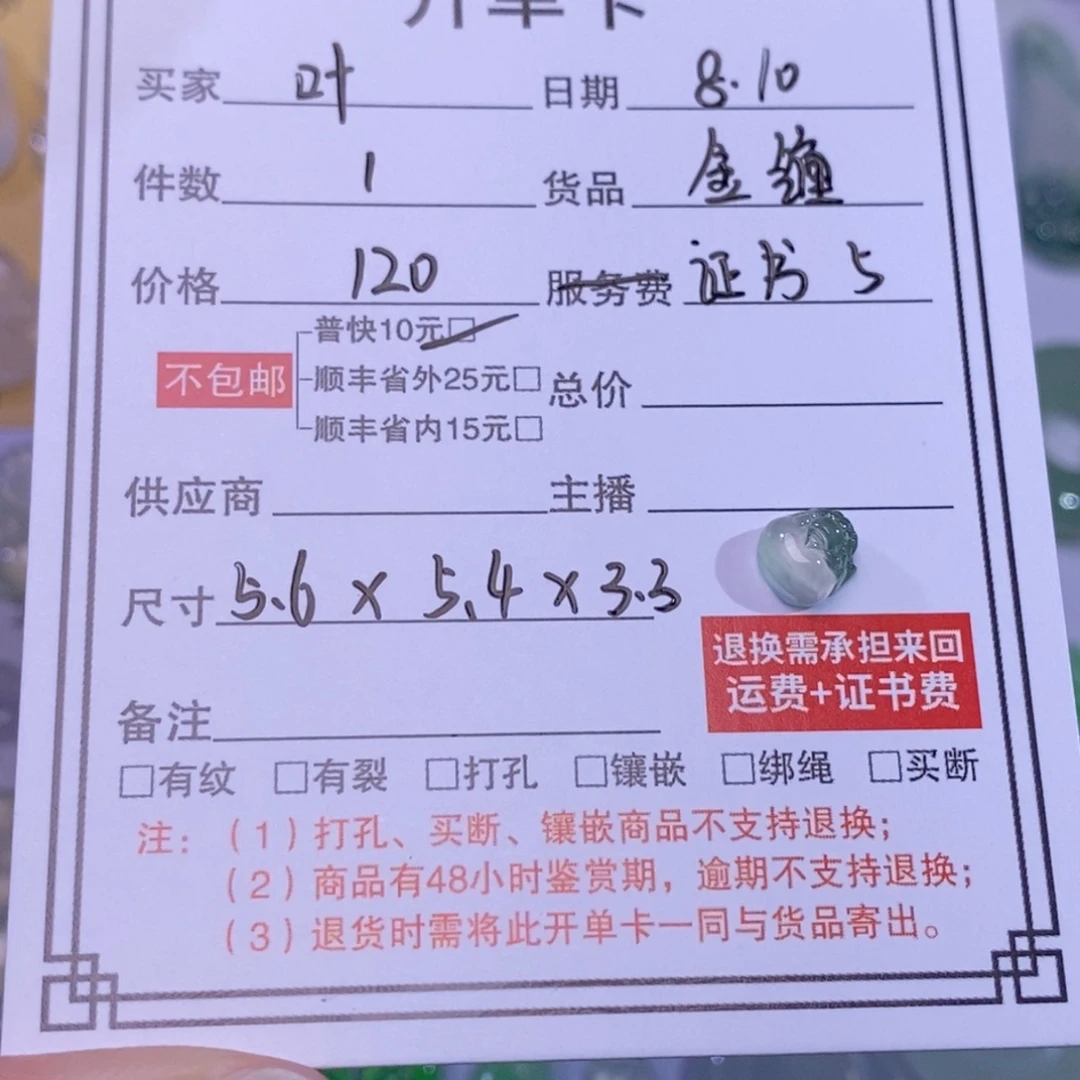 开单卡
买家 叶 日期 8.10
件数 1 货品 金蟾
价格 120 服务费 证书 5
普快10元□
不包邮 顺丰省外25元□ 总价
顺丰省内15元□
供应商 主播
尺寸 5.6 x 5.4 x 3.3
退换需承担来回
运费+证书费
备注
□有纹 □有裂 □打孔 □镶嵌 □绑绳 □买断
注：（1）打孔、买断、镶嵌商品不支持退换；
（2）商品有48小时鉴赏期，逾期不支持退换；
（3）退货时需将此开单卡一同与货品寄出。